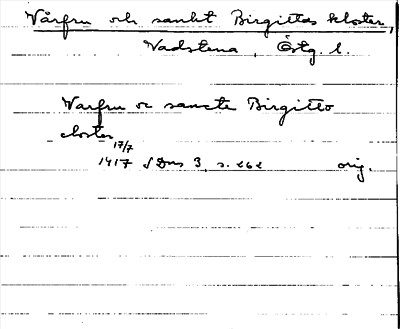 Vårfru och sankt Birgittas kloster,
Vadstena, Östg. l.
Warfru oc sancte Birgitto
closter
17/7
1417 SDns 3, s. 262 orig.